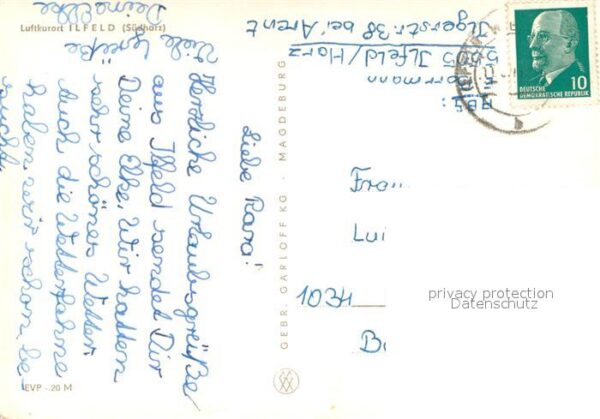 Luftkurort ILFELD (Südharz)
Liebe Rara!
Herzliche Urlaubsgrüße
aus Ilfeld sendet Dir
Deine Elke. Wir hatten
sehr schönes Wetter.
Auch die Wetterfahne
haben wir schon be
sucht.
Viele Grüße
Deine Elke
EVP -.20 M
GEBR. GARLOFF KG · MAGDEBURG
Abs:
5505 Ilfeld/Harz
Ilgerstr. 38 bei Arent
10
DEUTSCHE
DEMOKRATISCHE REPUBLIK
Frau
Lui
1034
B
privacy protection
Datenschutz